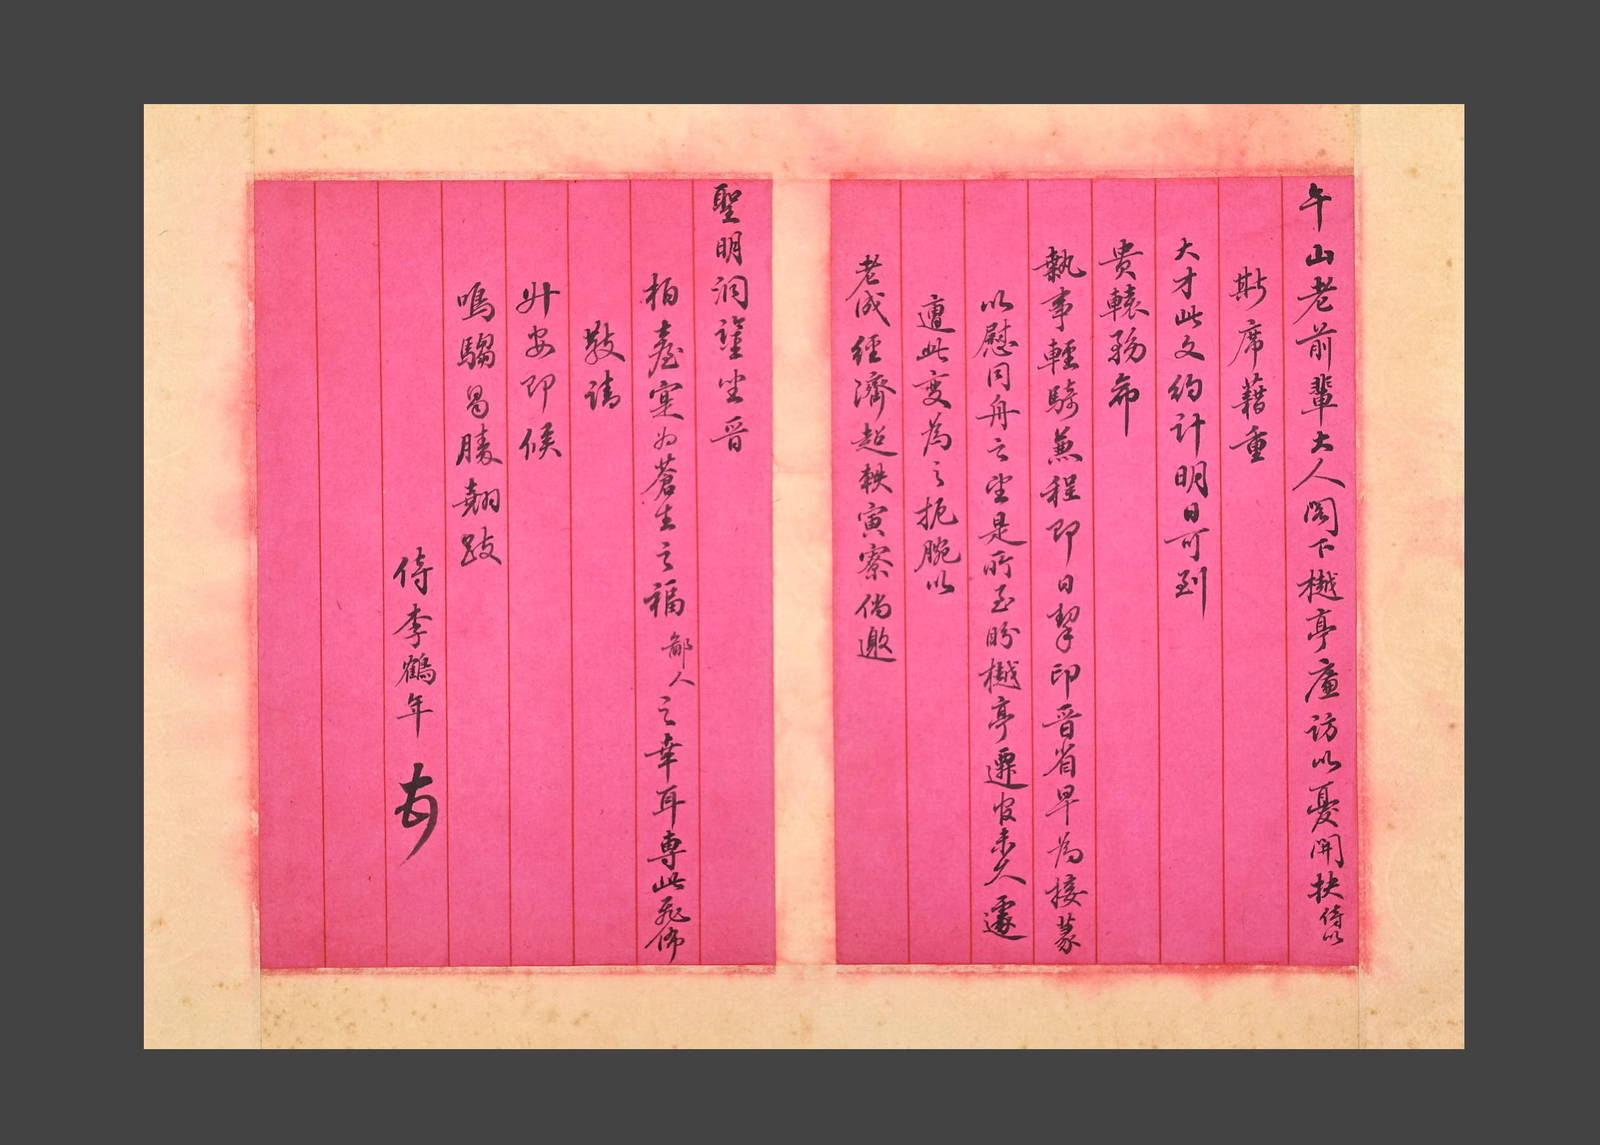 午山老前輩大人閣下樾亭廉訪以憂開執侍以
斯席藉重
大才此文約計明日可到
貴轅務希
執事輕騎兼程即日挈印晉省早為接篆
以慰同舟之望是所至盼樾亭遷官未久遽
遭此变為之扼腕以
老成經濟超軼寅寮倘邀
聖明洞鑒坐晉
柏臺寔為蒼生之福鄙人之幸耳專此飛佈
敬請
升安即候
鳴騶曷勝翹跂
侍李鶴年